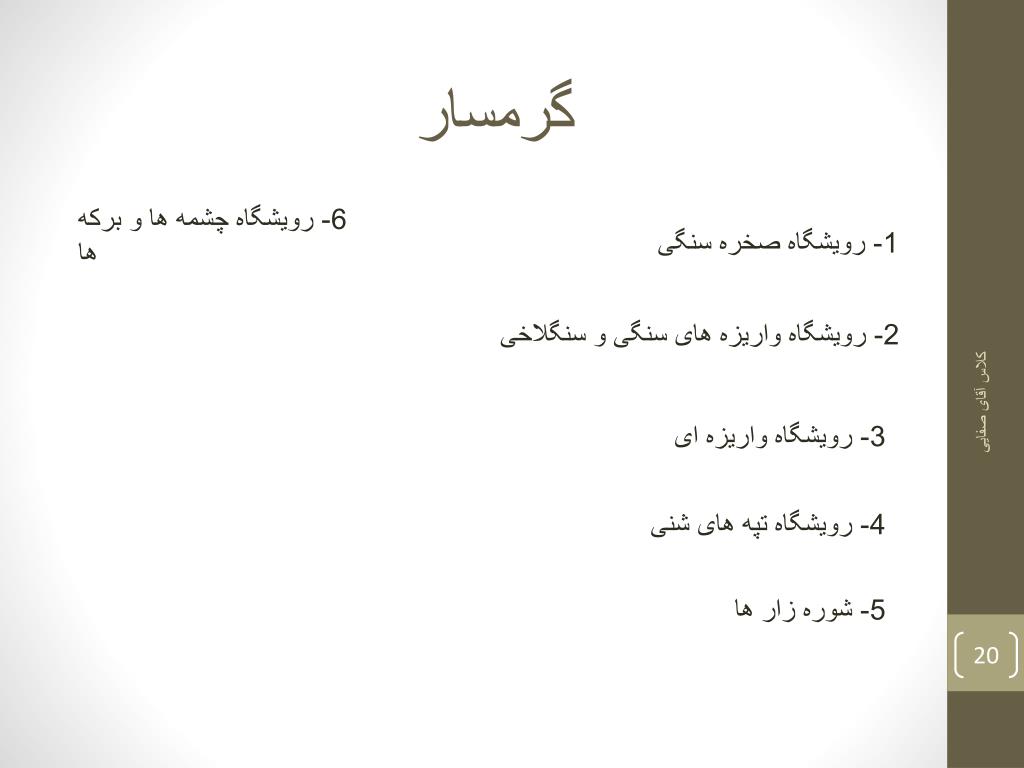 گرمسار
1- رویشگاه صخره سنگی
2- رویشگاه واریزه های سنگی و سنگلاخی
3- رویشگاه واریزه ای
4- رویشگاه تپه های شنی
5- شوره زار ها
6- رویشگاه چشمه ها و برکه
ها
کلاس آقای صفایی
20